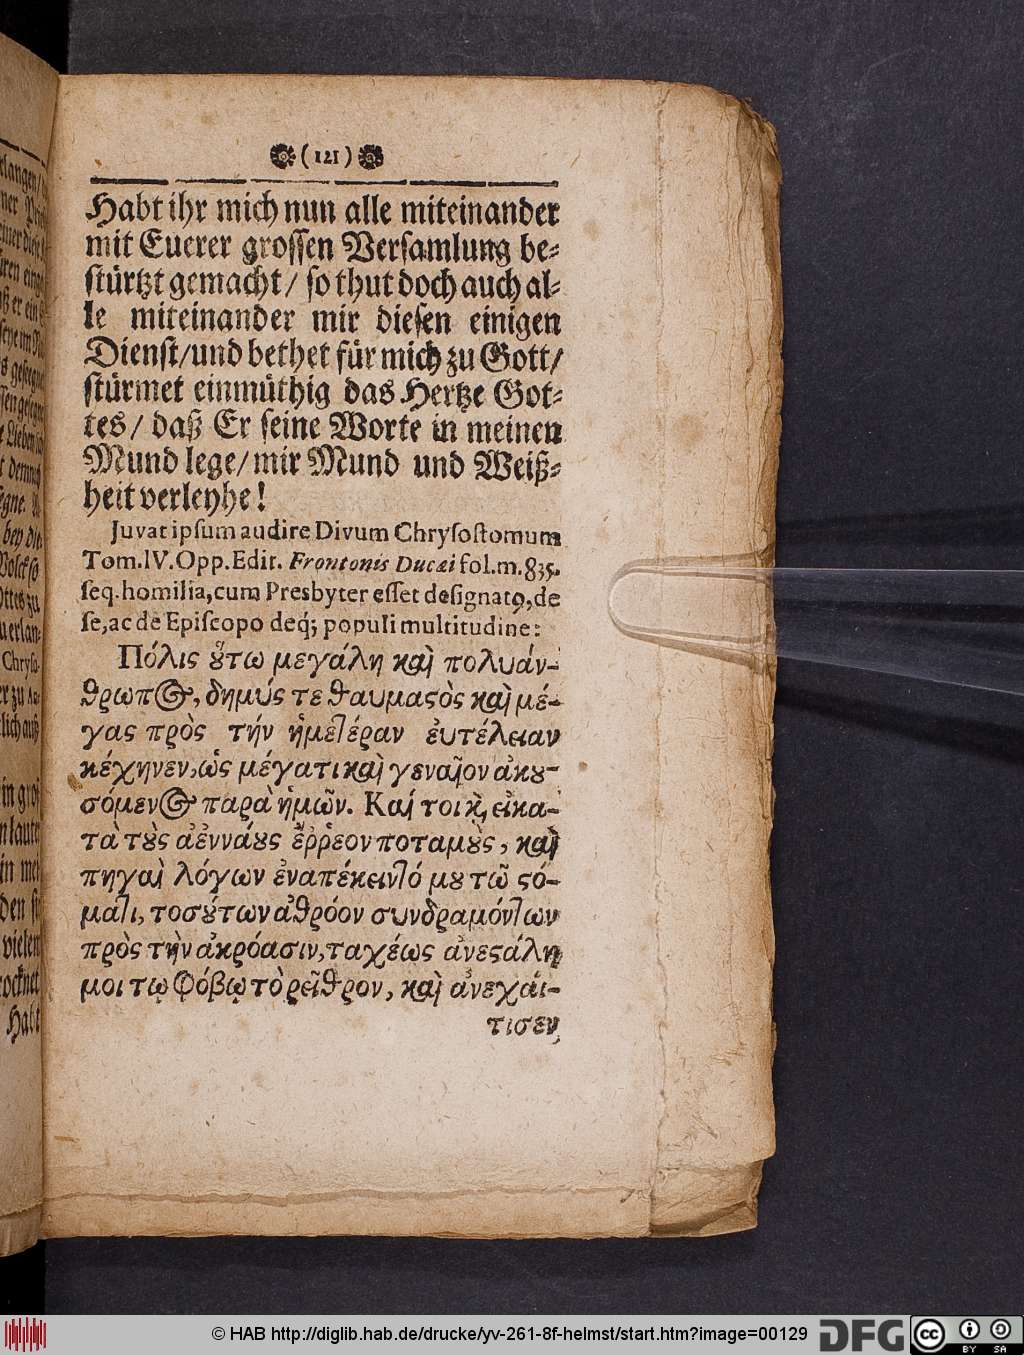 ( 121 )
Habt ihr mich nun alle miteinander
mit Euerer grossen Versamlung be-
stürtzt gemacht / so thut doch auch al-
le miteinander mir diesen einigen
Dienst / und bethet für mich zu Gott /
stürmet einmüthig das Hertze Got-
tes / daß Er seine Worte in meinen
Mund lege / mir Mund und Weiß-
heit verleyhe !
Juvat ipsum audire Divum Chrysostomum
Tom. IV. Opp. Edit. Frontonis Ducæi fol. m. 835.
seq. homilia, cum Presbyter esset designatꝰ, de
se, ac de Episcopo deq́; populi multitudine:
Πόλις ὅυτω μεγάλη καὶ πολυάν-
θρωπος, δημύς τε θαυμαςὸς καὶ μέ-
γας πρὸς τήν ἡμετέραν ἐυτέλειαν
κέχηνεν, ὡς μέγα τι καὶ γεναῖον ἀκου-
σόμενος παρὰ ἡμῶν. Καί τοι κἢ εἰκα-
τὰ τοὺς ἀἐννάους ἔῤῥεον ποταμοὺς, καὶ
πηγαὶ λόγων ἐναπέκειντό μου τῶ ςό-
ματι, τοσούτων ἀθρόον συνδραμόντων
πρὸς τὴν ἀκρόασιν, ταχέως ἀνεςάλη
μοι τῳ φόβῳ τὸ ρεῖθρον, καὶ ἀνεχάι-
τισεν
Habt
© HAB http://diglib.hab.de/drucke/yv-261-8f-helmst/start.htm?image=00129
DFG
cc BY SA